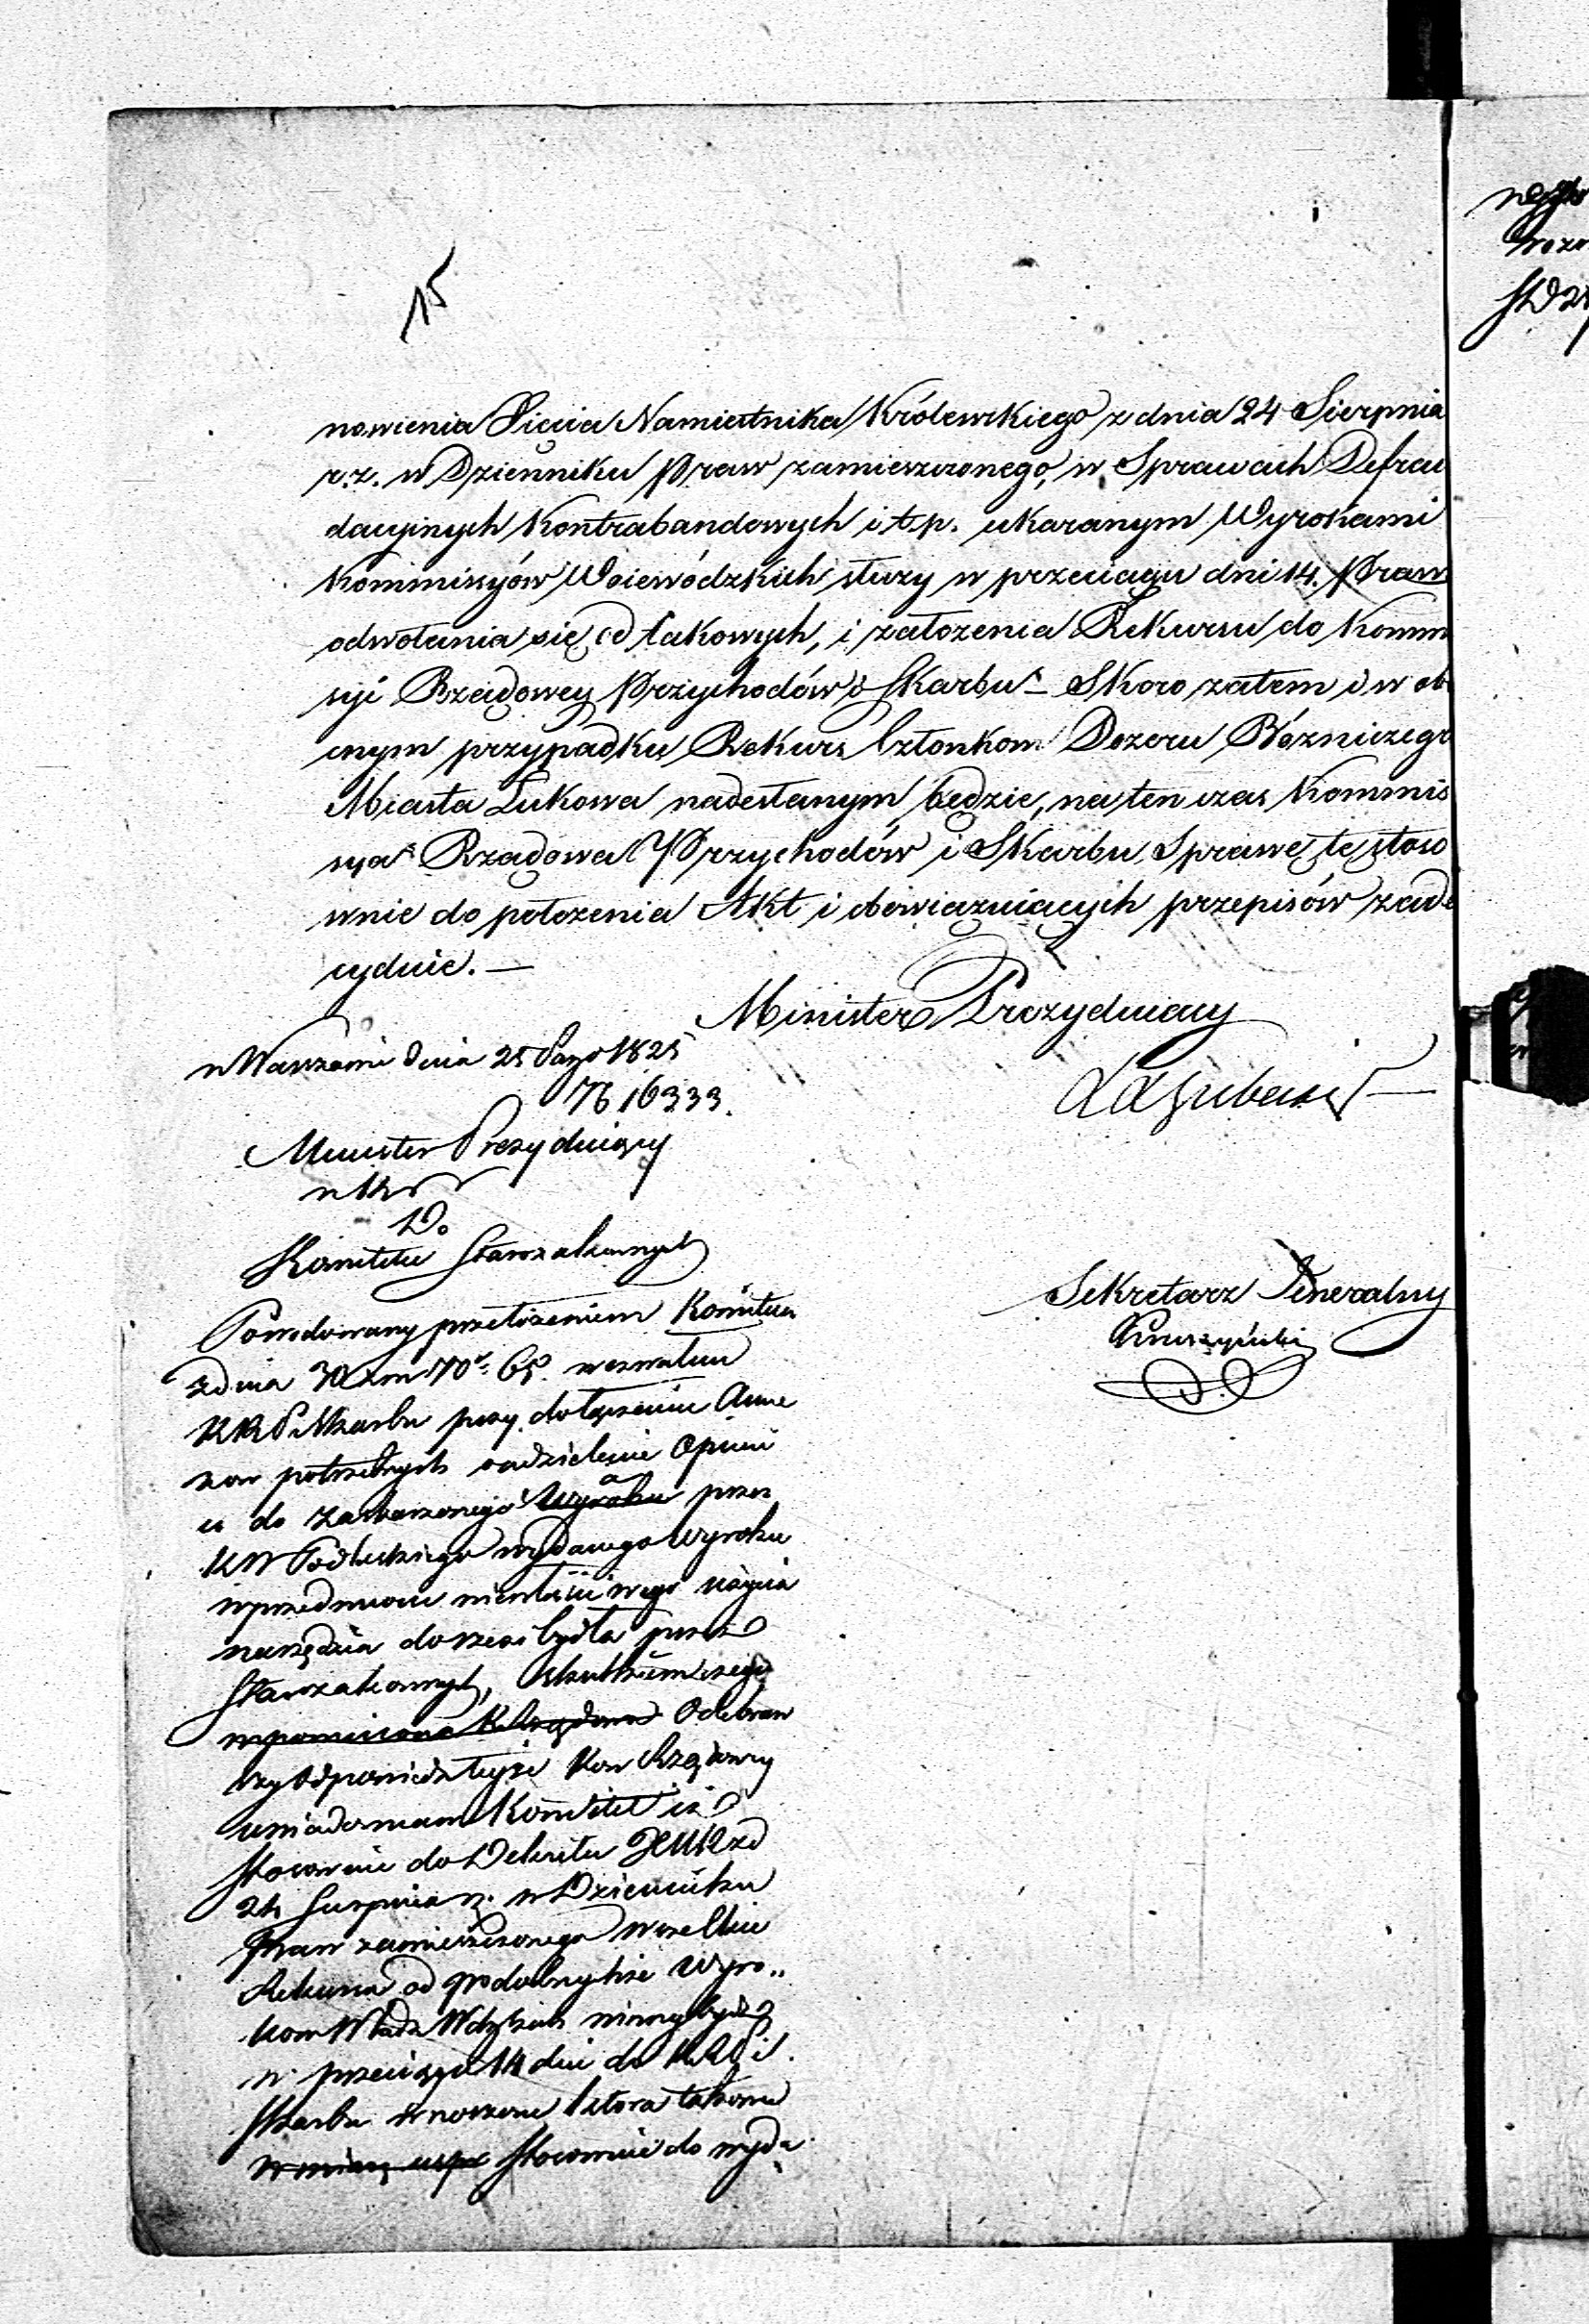 15
nowienia Xięcia Namiestnika Królewskiego z dnia 24 Sierpnia
r. z. w Dzienniku Praw zamieszczonego, w Sprawach Defrau
dacyinych Kontrabandowych i t. p. ukaranym Wyrokami
Kommissyów Woiewódzkich służy w przeciągu dni 14. Prawo
odwołania się od takowych, i założenia Rekursu do Kommi
syi Rządowey Przychodów i Skarbu – Skoro zatem i w obe
cnym przypadku Rekurs Członkom Dozoru Bóżniczego
Miasta Łukowa nadesłanym będzie, na ten czas Kommis
sya Rządowa Przychodów i Skarbu, Sprawę tę stoso
wnie do położenia Akt i obowiązuiących przepisów zade
cyduie. —
Minister Prezyduiący
w Warszawie dnia 25 Paźo 1825
No 16333.
Minister Prezyduiący
w
Do
Komitetu Starozakonnych
Sekretarz Jeneralny
Powodowany przełożeniem Komitetu
z dnia 30 zm No 65. wezwałem
KRPiSkarbu przy dołączeniu Anne
xow potrzebnych o udzielenie Opinii
co do zaskarżonego Wyroku przez
KW Podlaskiego wydanego Wyroku
w przedmiocie niewłaściwego użycia
narzędzia do rzezi bydła przez
Starozakonnych, Skutkiem czego
wspomniona K Rządowa Odebraw
szy Odpowiedź teyże Kom Rządowey
uwiadamiam Komitet iż
stosownie do Dekretu XNKr z d
24 Sierpnia rz. w Dzienniku
Praw zamieszczonego wszelkie
Rekursa od podobnychże Wyro„
kow Władz Wdzkich winny bydź
w przeciągu 14 dni do KRP i
Skarbu wnoszone która takowe
stosownie do wyda